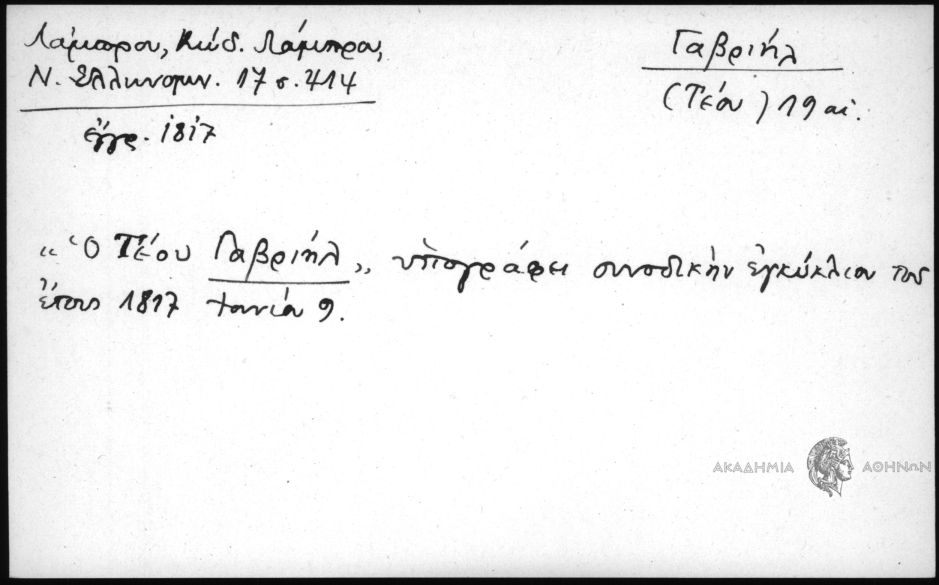 Λάμπρου, Κώδ. Λάμπρου,
Ν. Ἑλληνομν. 17 σ. 414
ἔγγρ. 1817
Γαβριήλ
(Τέου) 19 αἰ.
“ Ὁ Τέου Γαβριήλ „ ὑπογράφει συνοδικὴν ἐγκύκλιον τοῦ
ἔτους 1817 9.
ΑΚΑΔΗΜΙΑ ΑΘΗΝΩΝ